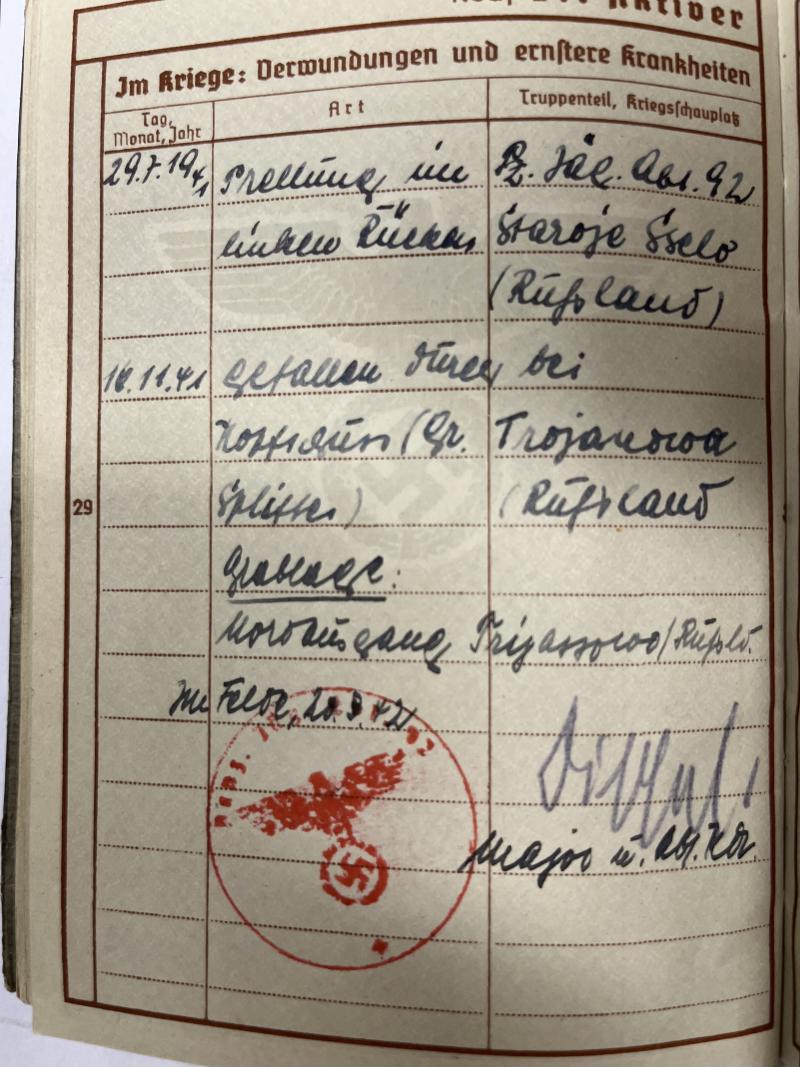 Aktiver
Im Kriege: Verwundungen und ernstere Krankheiten
Tag, Monat, Jahr
Art
Truppenteil, Kriegsschauplatz
29.7.1941 Prellung im Pz. Jäg. Abt. 92
linken Rücken Staroje Sselo
(Rußland)
gefallen durch bei
Kopfschuss (Gr. Trojanowa
Splitter) (Rußland
29
Grablage:
Nordausgang /Rußld.
Im Felde,
Major u. Abt. Kdr.